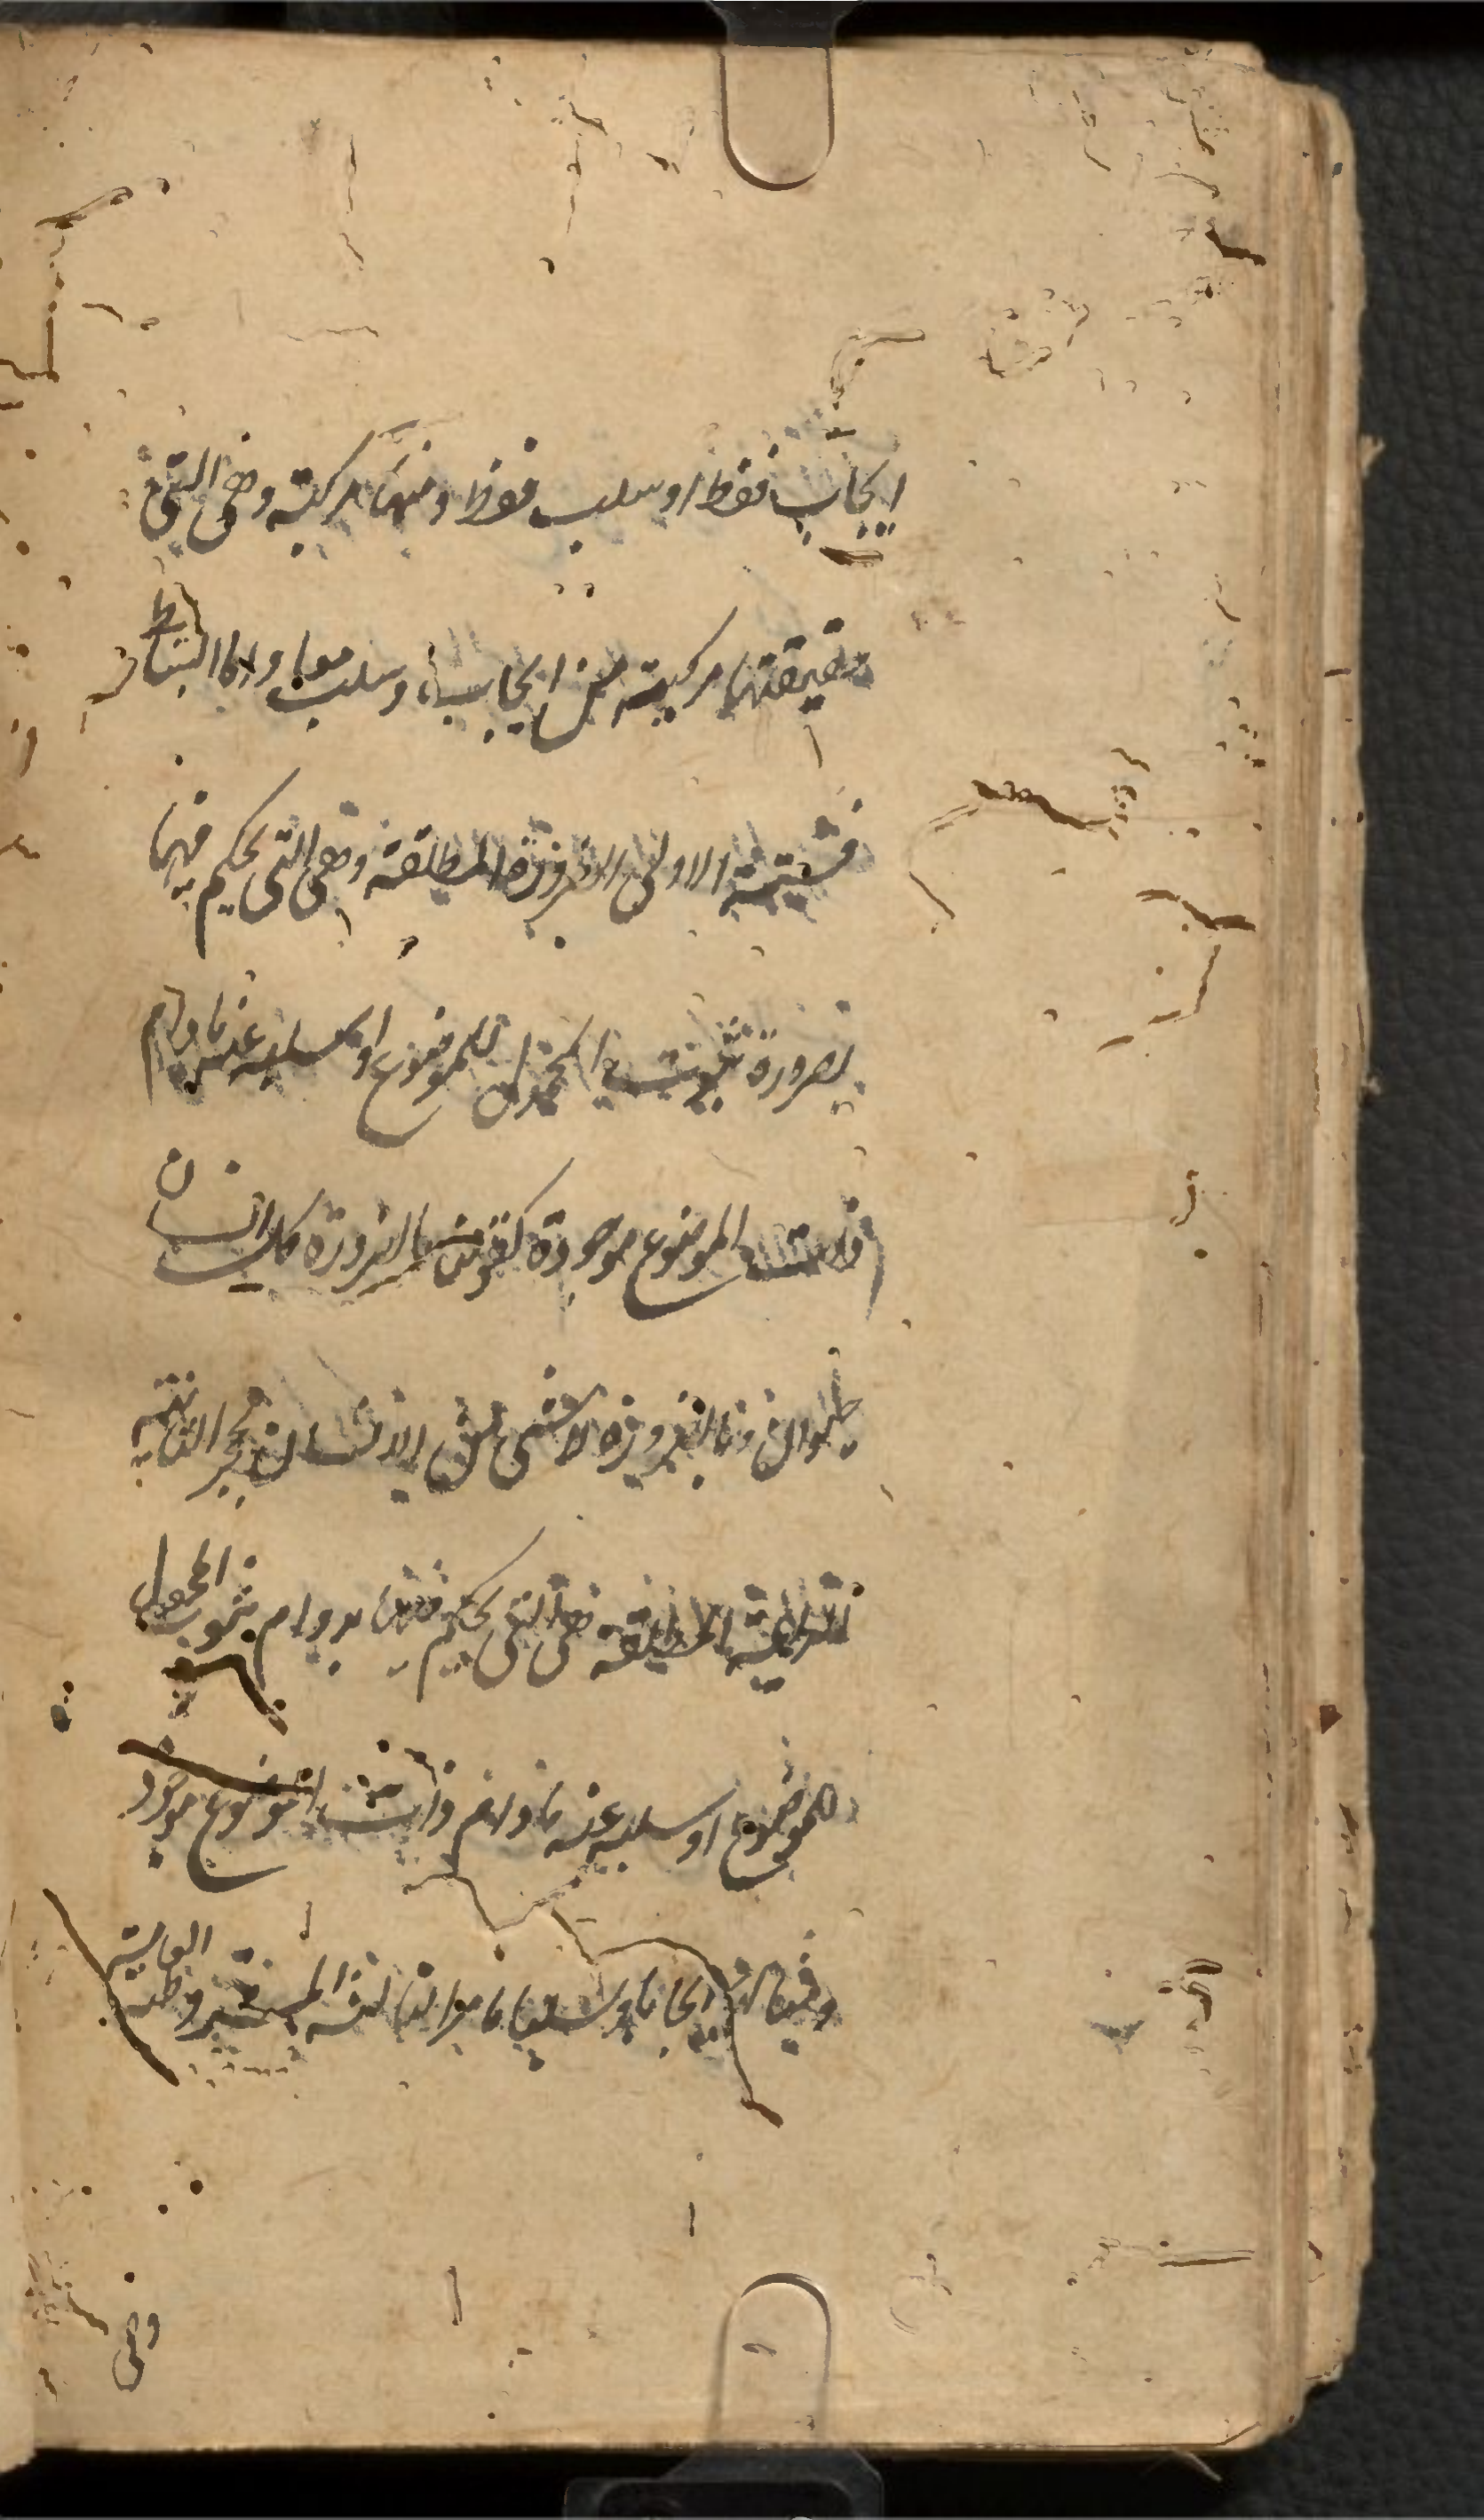 ايجاب فقط او سلب فقط ومنها مركبة وهي التي
حقيقتها مركبة من ايجاب وسلب معا واما البسائط
فستة الاولى الضرورة المطلقة وهي التي يحكم فيها
بضرورة ثبوت المحمول للموضوع او سلبه عنه مادام
ذات الموضوع موجودة كقولنا بالضرورة كل انسان
حيوان وبالضرورة لا شيء من الانسان بحجر الثانية
الدائمة المطلقة هي التي يحكم فيها بدوام ثبوت المحمول
للموضوع او سلبه عنه مادام ذات الموضوع موجود
ايجابا وسلبا ما مر الثالثة المشروطة العامة
وهي